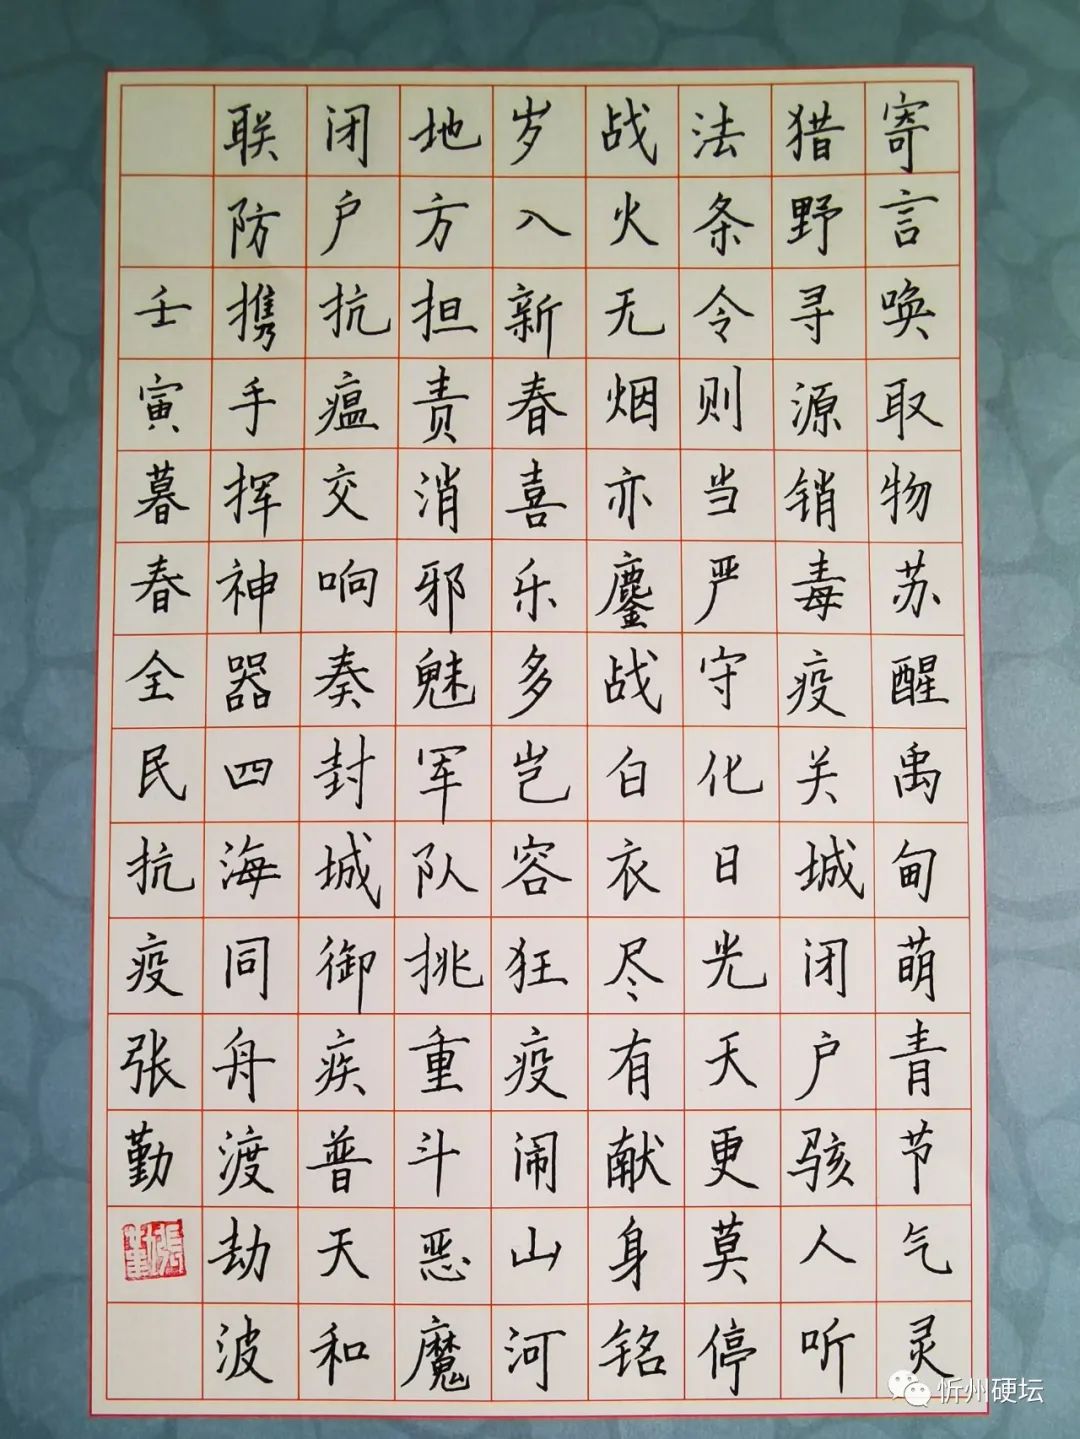 寄言唤取物苏醒禹甸萌青节气灵
猎野寻源销毒疫关城闭户骇人听
法条令则当严守化日光天更莫停
战火无烟亦鏖战白衣尽有献身铭
岁入新春喜乐多岂容狂疫闹山河
地方担责消邪魅军队挑重斗恶魔
闭户抗瘟交响奏封城御疾普天和
联防携手挥神器四海同舟渡劫波
壬寅暮春全民抗疫张勤
张勤
忻州硬坛